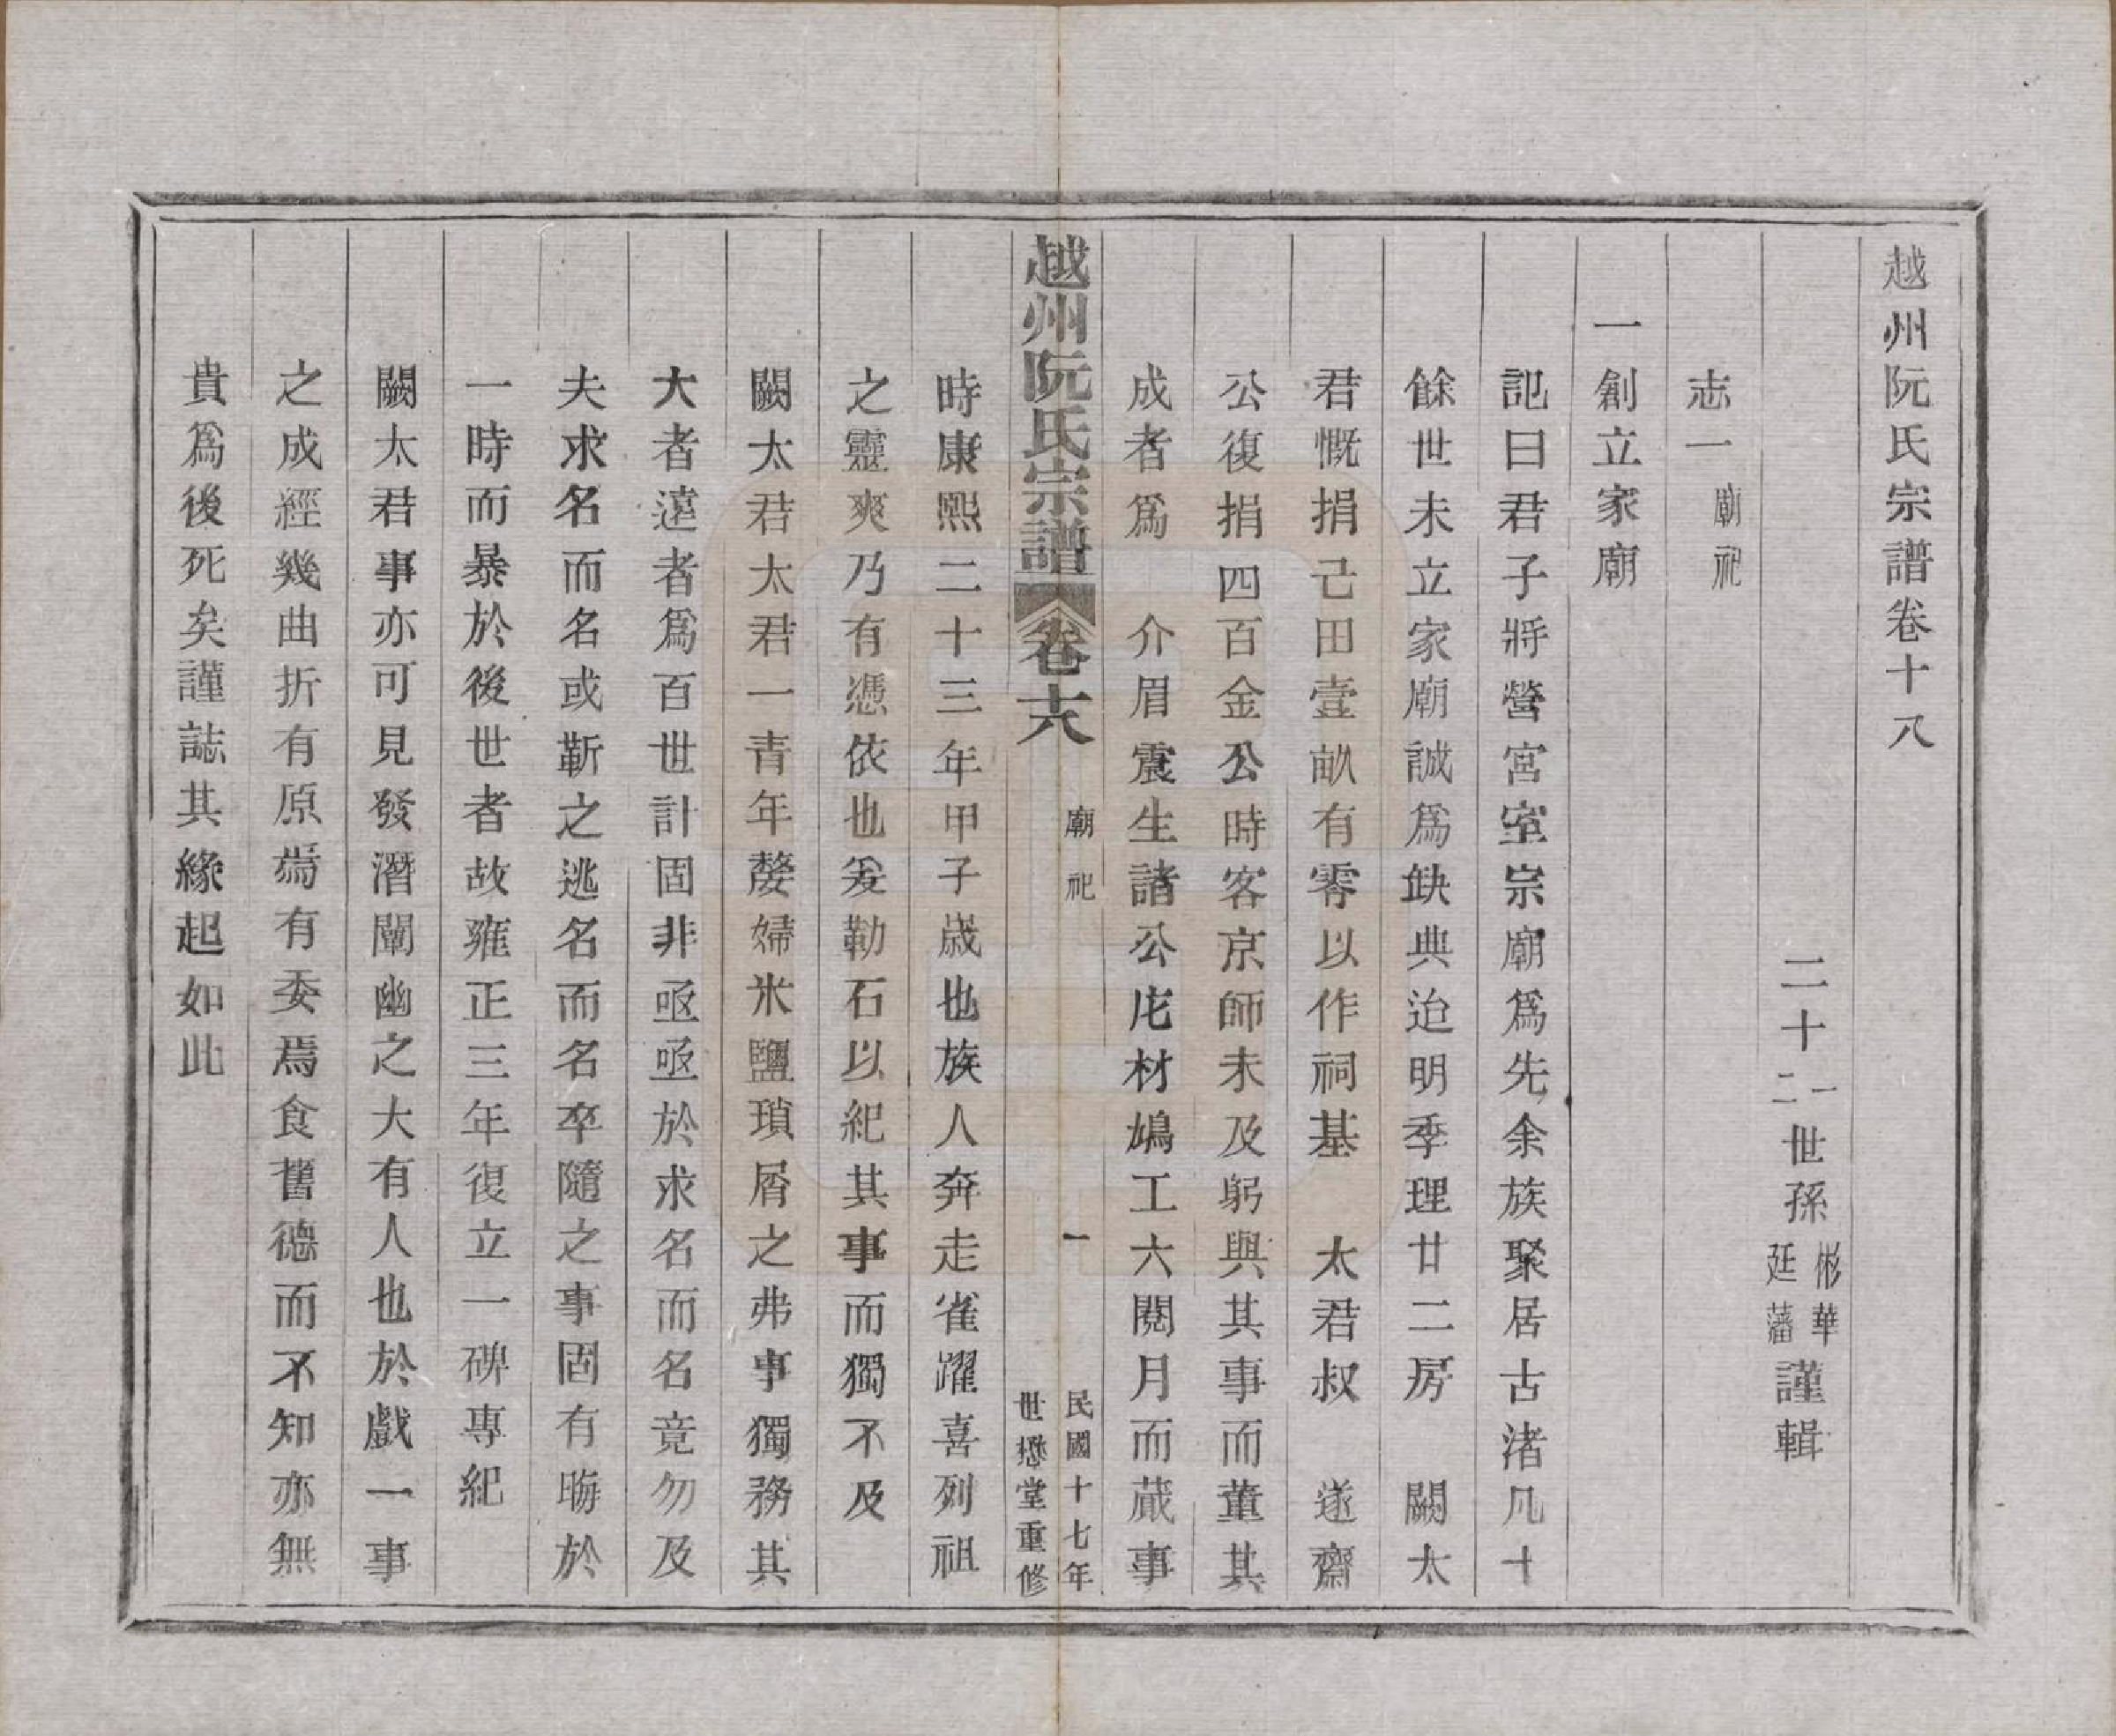 越州阮氏宗譜卷十八
二十一二世孫彬華廷藩謹輯
志一 廟祀
一創立家廟
記曰君子將營宮室宗廟爲先余族聚居古渚凡十
餘世未立家廟誠爲缺典迨明季理廿二房 闕太
君慨捐己田壹畝有零以作祠基 太君叔 遂齋
公復捐四百金公時客京師未及躬與其事而董其
成者爲 介眉震生諸公庀材鳩工六閱月而蕆事
越州阮氏宗譜 卷十八 廟祀 一 民國十七年
世懋堂重修
時康熙二十三年甲子歲也族人奔走雀躍喜列祖
之靈爽乃有憑依也爰勒石以紀其事而獨不及
闕太君太君一青年嫠婦米鹽瑣屑之弗事獨務其
大者遠者爲百世計固非亟亟於求名而名竟勿及
夫求名而名或靳之逃名而名卒隨之事固有晦於
一時而暴於後世者故雍正三年復立一碑專紀
闕太君事亦可見發潛闡幽之大有人也於戲一事
之成經幾曲折有原焉有委焉食舊德而不知亦無
貴爲後死矣謹誌其緣起如此